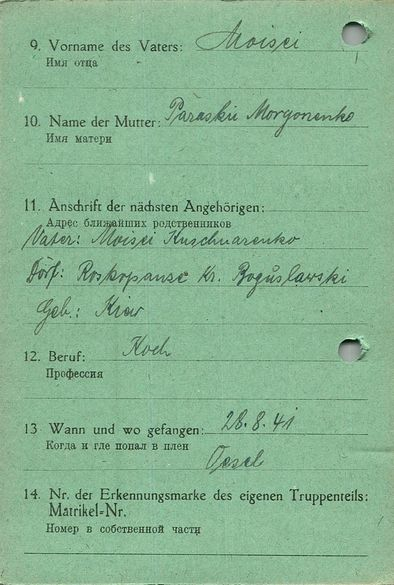 9. Vorname des Vaters: Moisei
Имя отца
10. Name der Mutter: Paraskii Morgonenko
Имя матери
11. Anschrift der nächsten Angehörigen:
Адрес ближайших родственников
Vater: Moisei Kuschnarenko
Dorf: Roskopanse Kr. Boguslawski
Geb.: Kiew
12. Beruf: Koch
Профессия
13 Wann und wo gefangen: 28.8.41
Когда и где попал в плен
Oesel
14. Nr. der Erkennungsmarke des eigenen Truppenteils:
Matrikel=Nr.
Номер в собственной части